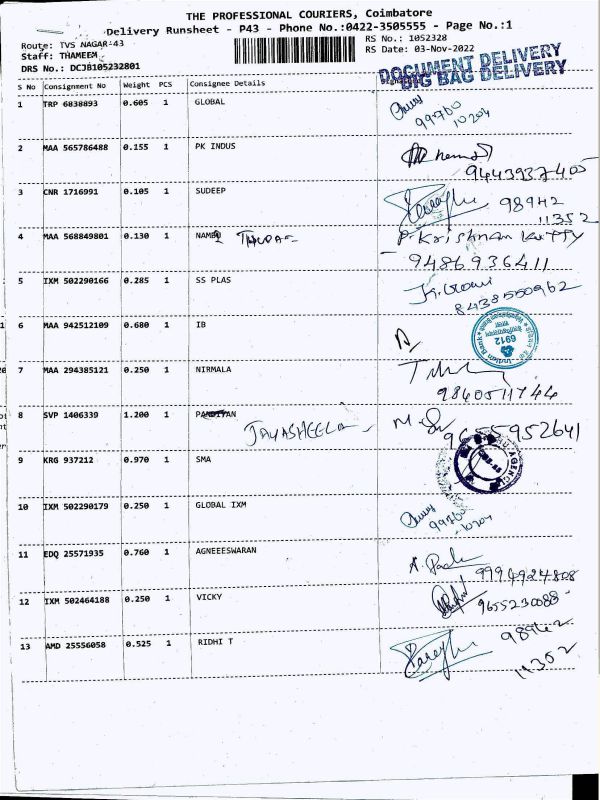 THE PROFESSIONAL COURIERS, Coimbatore
Delivery Runsheet - P43 - Phone No.:0422-3505555 - Page No.:1
Route: TVS NAGAR-43
RS No.: 1052328
Staff: THAMEEM
RS Date: 03-Nov-2022
DRS No.: DCJB105232801
DOCUMENT DELIVERY
BIG BAG DELIVERY
S No Consignment No Weight PCS Consignee Details
1 TRP 6838893 0.605 1 GLOBAL
99760
10204
2 MAA 565786488 0.155 1 PK INDUS
9443937405
3 CNR 1716991 0.105 1 SUDEEP
98942
11352
4 MAA 568849801 0.130 1 P. Krishnan Kutty
9486936411
5 IXM 502290166 0.285 1 SS PLAS
8438550962
6 MAA 942512109 0.680 1 IB
Indian Bank
6912
7 MAA 294385121 0.250 1 NIRMALA
9840511744
8 SVP 1406339 1.200 1 PANDIYAN JAYASHEELA
9655952641
9 KRG 937212 0.970 1 SMA
10 IXM 502290179 0.250 1 GLOBAL IXM
99760
10204
11 EDQ 25571935 0.760 1 AGNEEESWARAN
9994924808
12 IXM 502464188 0.250 1 VICKY
9655230088
13 AMD 25556058 0.525 1 RIDHI T
98942
11352